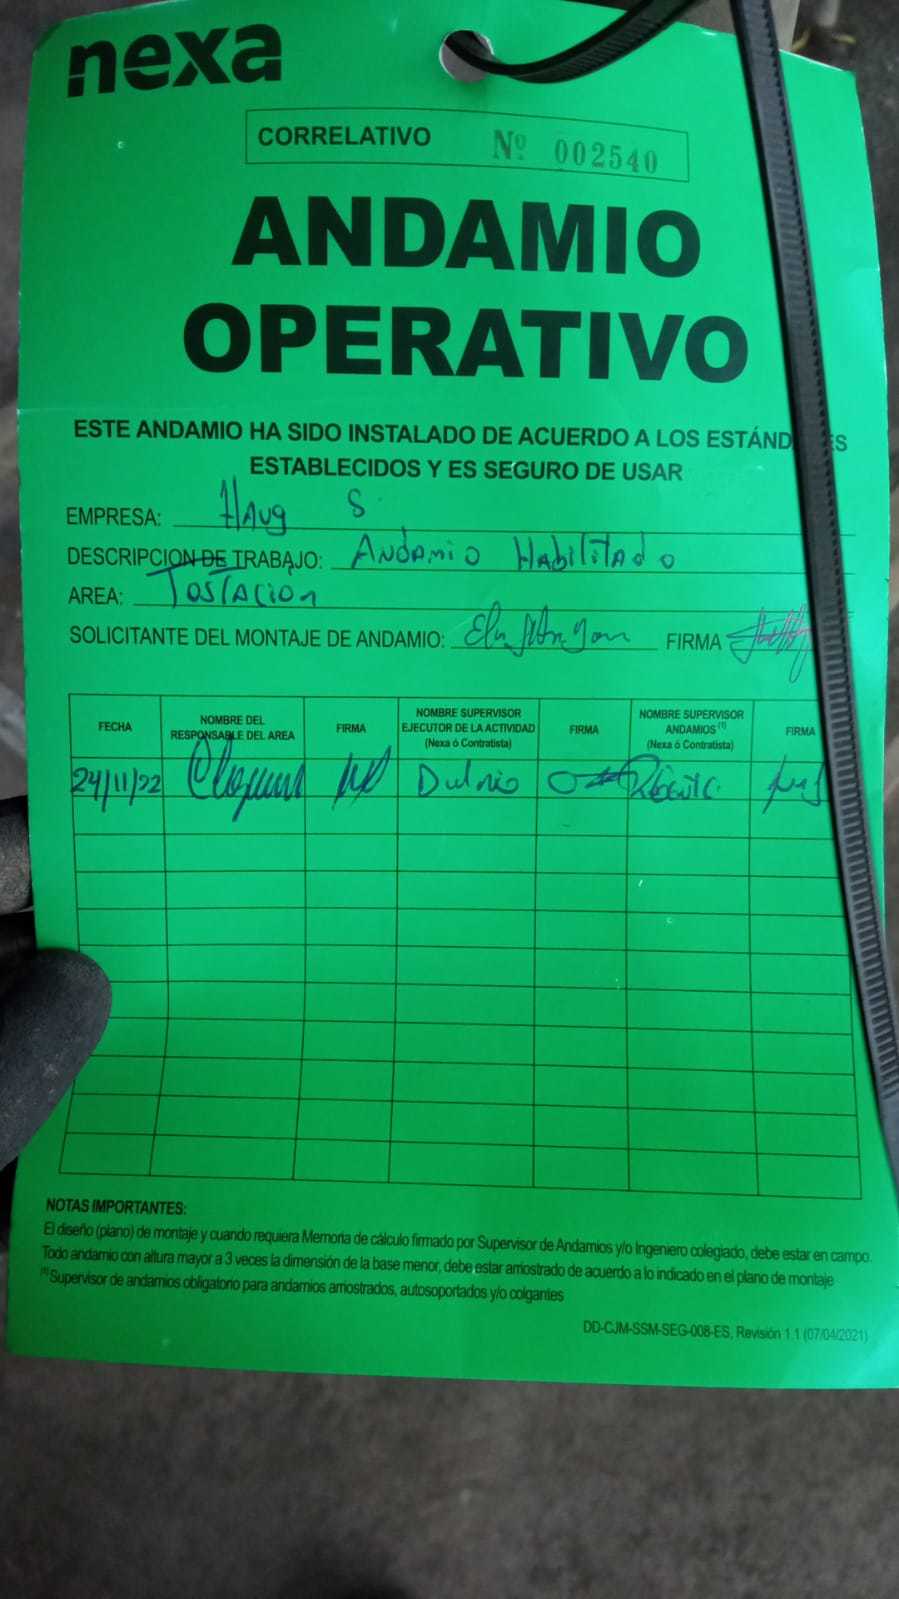 nexa
CORRELATIVO Nº 002540
ANDAMIO
OPERATIVO
ESTE ANDAMIO HA SIDO INSTALADO DE ACUERDO A LOS ESTÁND ES
ESTABLECIDOS Y ES SEGURO DE USAR
EMPRESA: Haug S
DESCRIPCION DE TRABAJO: Andamio Habilitado
AREA: Tostacion
SOLICITANTE DEL MONTAJE DE ANDAMIO: FIRMA
FECHA NOMBRE DEL RESPONSABLE DEL AREA FIRMA NOMBRE SUPERVISOR EJECUTOR DE LA ACTIVIDAD (Nexa ó Contratista) FIRMA NOMBRE SUPERVISOR ANDAMIOS (1) (Nexa ó Contratista) FIRMA
24/11/22
NOTAS IMPORTANTES:
El diseño (plano) de montaje y cuando requiera Memoria de cálculo firmado por Supervisor de Andamios y/o Ingeniero colegiado, debe estar en campo.
Todo andamio con altura mayor a 3 veces la dimensión de la base menor, debe estar arriostrado de acuerdo a lo indicado en el plano de montaje
(1) Supervisor de andamios obligatorio para andamios arriostrados, autosoportados y/o colgantes
DD-CJM-SSM-SEG-008-ES, Revisión 1.1 (07/04/2021)